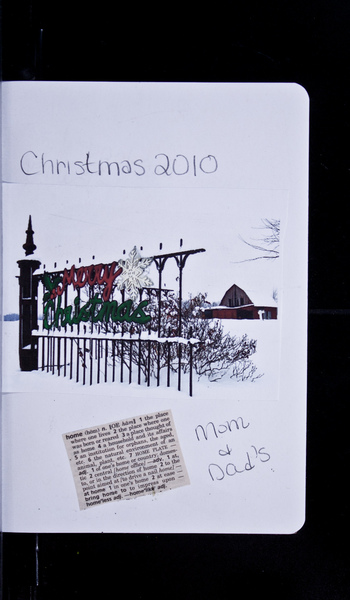 Christmas 2010
Merry
Christmas
home (hōm) n. [OE. hām] 1 the place
where one lives 2 the place where one
was born or reared 3 a place thought of
as home 4 a household and its affairs
5 an institution for orphans, the aged,
etc. 6 the natural environment of an
animal, plant, etc. 7 HOME PLATE —
adj. 1 of one's home or country, domes-
tic 2 central [home office] —adv. 1 at,
to, or in the direction of home 2 to the
point aimed at [to drive a nail home]
at home 1 in one's home 2 at ease —
bring home to to impress upon —
home'less adj. —home'like' adj.
Mom
&
Dad's